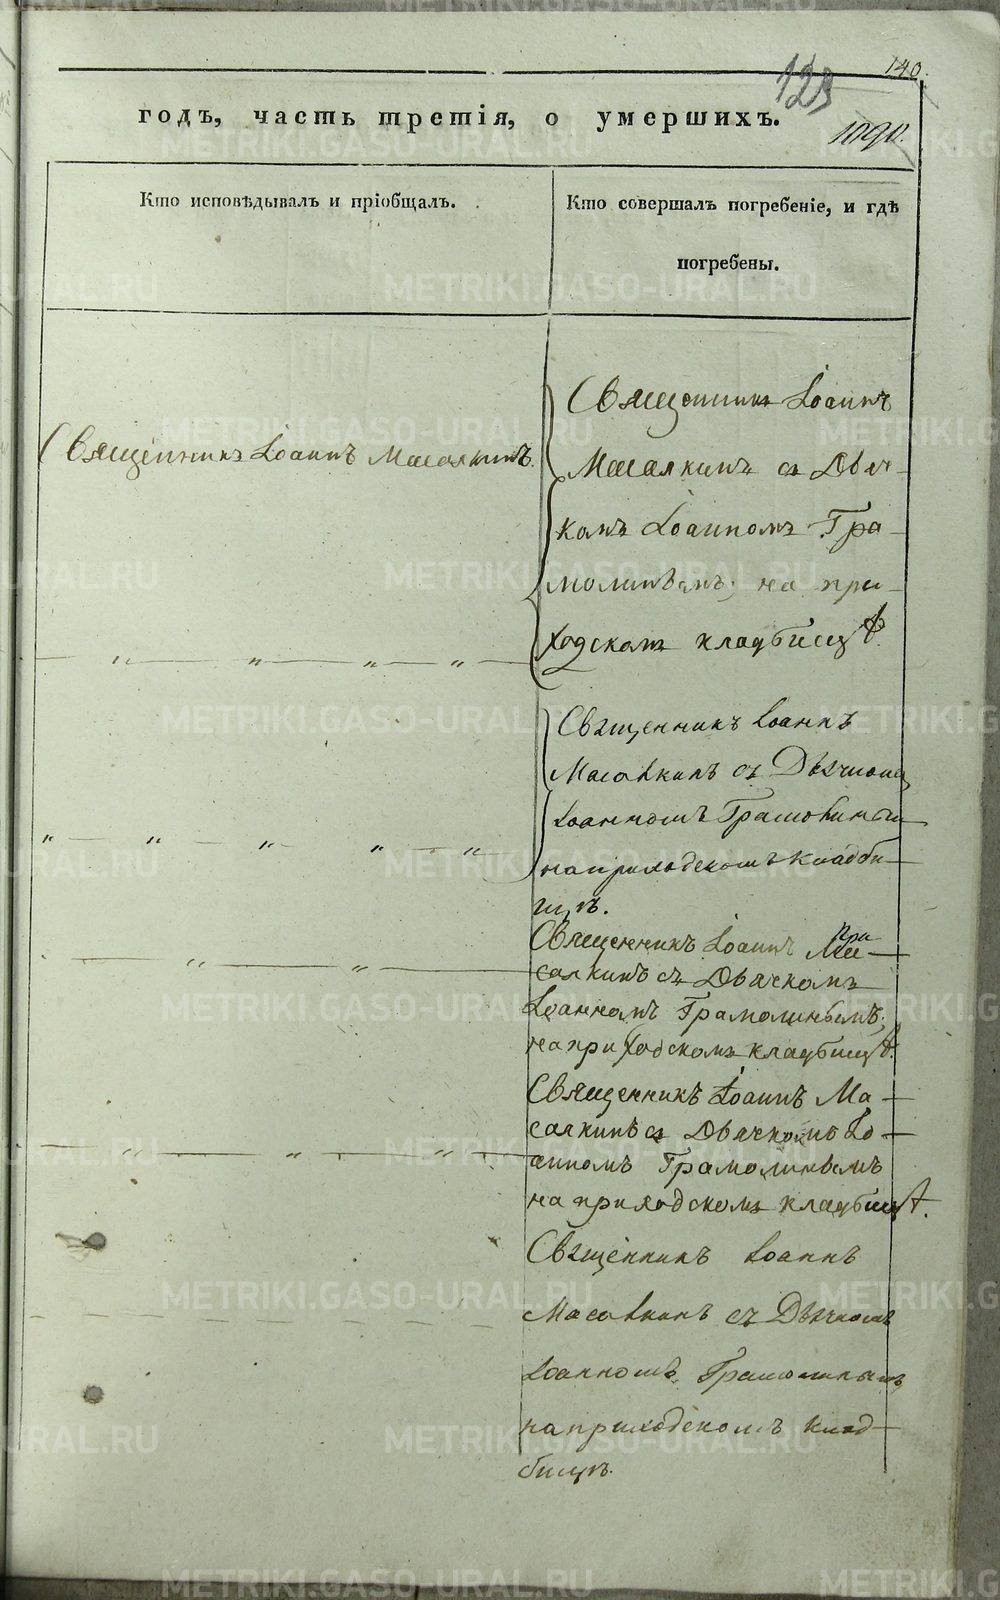 140.
123
1090.
годъ, часть третія, о умершихъ.
Кто исповѣдывалъ и пріобщалъ.
Кто совершалъ погребеніе, и гдѣ
погребены.
Священникъ Іоаннъ Масалкинъ.
Священникъ Іоаннъ
Масалкинъ съ Дьяч-
комъ Іоанномъ Гра-
молинымъ; на при-
ходскомъ кладбищѣ.
Священникъ Іоаннъ
Масалкинъ съ Дьячкомъ
Іоанномъ Грамолинымъ
на приходскомъ кладби-
щѣ.
Священникъ Іоаннъ Ма-
салкинъ съ Дьячкомъ
Іоанномъ Грамолинымъ;
на приходскомъ кладбищѣ.
Священникъ Іоаннъ Ма-
салкинъ съ Дьячкомъ Іо-
анномъ Грамолинымъ
на приходскомъ кладбищѣ.
Священникъ Іоаннъ
Масалкинъ съ Дьячкомъ
Іоанномъ Грамолинымъ
на приходскомъ клад-
бищѣ.
METRIKI.GASO-URAL.RU